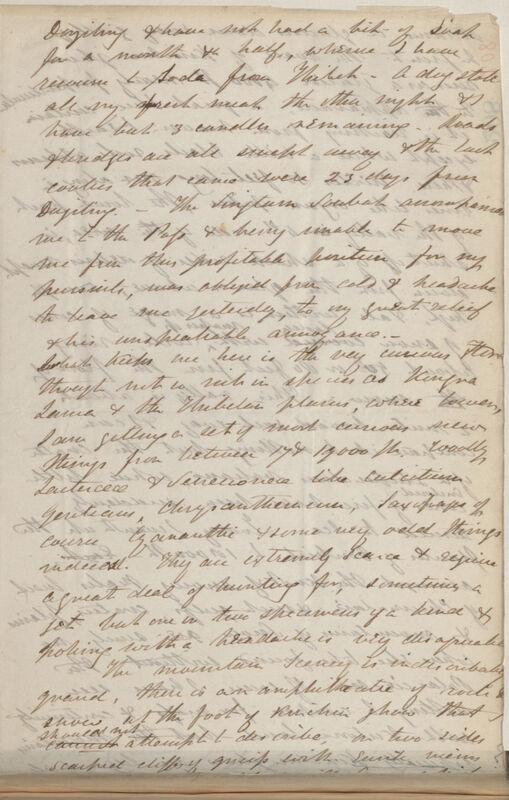 Dorjiling & have not had a bit of Soap
for a month & half, whence I have
recourse to Soda from Thibet - A dog stole
all my fresh meat the other night & I
have but 3 candles remaining. Roads
& bridges are all swept away & the last
coolies that came were 23 days from
Dorjiling. - The Singtam Soubah accompanied
me to the Pass & being unable to move
me from this profitable position for my
pursuits, was obliged from cold & headache
to leave me yesterday, to my great relief
& his unspeakable annoyance. -
What keeps me here is the very curious flora
though not so rich in species as Kongra
Lama & the Thibetan plains, where however
I am getting a set of most curious new
things from between 17 & 19000 ft. Woolly
& Senecioneae like Culcitium
Gentians, Chrysanthemum, Saxifrage of
course Cyananthi & some very odd things
indeed. They are extremely scarce & require
a great deal of hunting for, sometimes I
get but one or two specimens of a kind &
poking with a headache is very disagreeable
The mountain scenery is indescribably
grand, there is an amphitheatre of rock &
snow at the foot of Kinchin jhow that I
should not
cannot attempt to describe on two sides
scarped cliffs of gneiss with granite veins